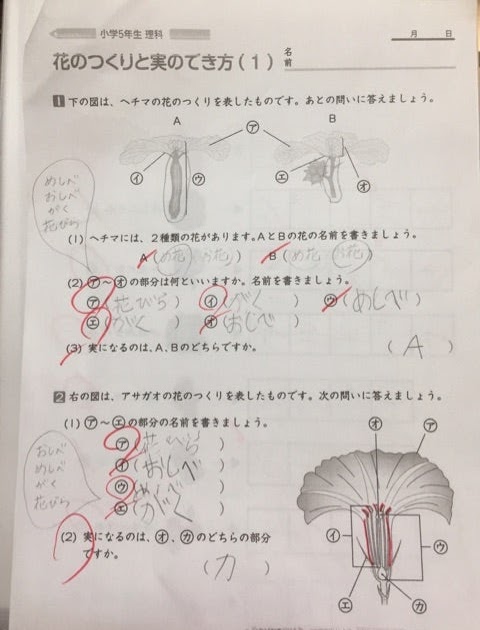 小学5年生 理科
月 日
花のつくりと実のでき方(1)
名前
1 下の図は、ヘチマの花のつくりを表したものです。あとの問いに答えましょう。
A B
ア
イ ウ エ オ
めしべ
おしべ
がく
花びら
(1) ヘチマには、2種類の花があります。AとBの花の名前を書きましょう。
A(め花 お花) B(め花 お花)
(2) ア〜オの部分は何といいますか。名前を書きましょう。
ア(花びら) イ(がく) ウ(めしべ)
エ(がく) オ(おしべ)
(3) 実になるのは、A、Bのどちらですか。
(A)
2 右の図は、アサガオの花のつくりを表したものです。次の問いに答えましょう。
(1) ア〜エの部分の名前を書きましょう。
おしべ
めしべ
がく
花びら
ア(花びら)
イ(おしべ)
ウ(めしべ)
エ(がく)
(2) 実になるのは、オ、カのどちらの部分
ですか。
(カ)
オ ア
イ ウ
エ カ